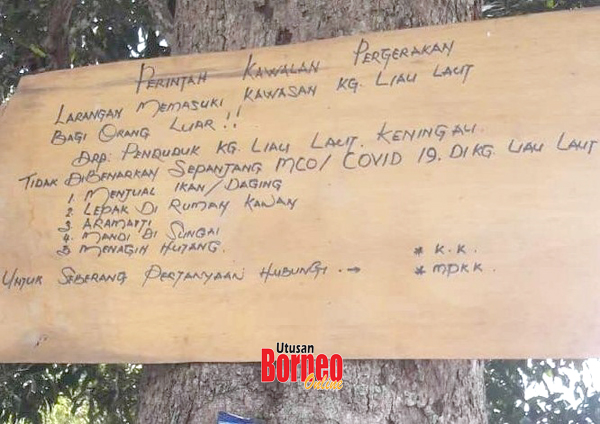 PERINTAH KAWALAN PERGERAKAN
LARANGAN MEMASUKI KAWASAN KG. LIAU LAUT
BAGI ORANG LUAR !!
DRP: PENDUDUK KG. LIAU LAUT. KENINGAU.
TIDAK DIBENARKAN SEPANTANG MCO/COVID 19. DI KG. LIAU LAUT
1. MENJUAL IKAN/DAGING
2. LEPAK DI RUMAH KAWAN
3. ARAMAITI
4. MANDI DI SUNGAI
5. MENAGIH HUTANG.
UNTUK SEBERANG PERTANYAAN HUBUNGI. →
* K.K.
* MPKK.
Utusan
Borneo
Online